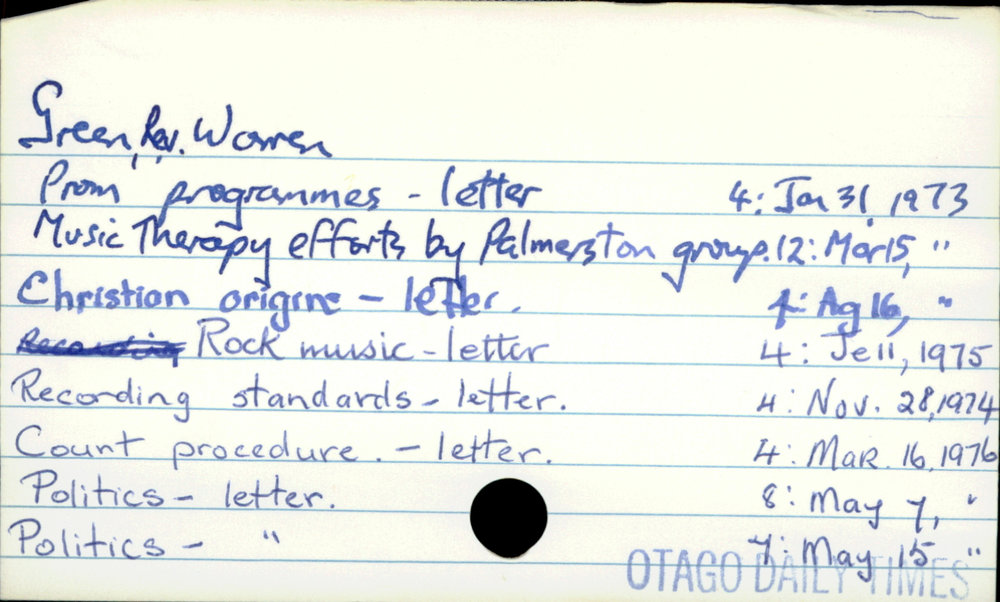 Green, Rev. Warren
Prom programmes - letter 4: Jan 31, 1973
Music Therapy efforts by Palmerston group. 12: Mar 15, "
Christian origine - letter. 4: Ag 16, "
Recording Rock music - letter 4: Je 11, 1975
Recording standards - letter. 4: Nov. 28, 1974
Court procedure. - letter. 4: MAR. 16, 1976
Politics - letter. 8: May 7, "
Politics - " 7: May 15 "
OTAGO DAILY TIMES